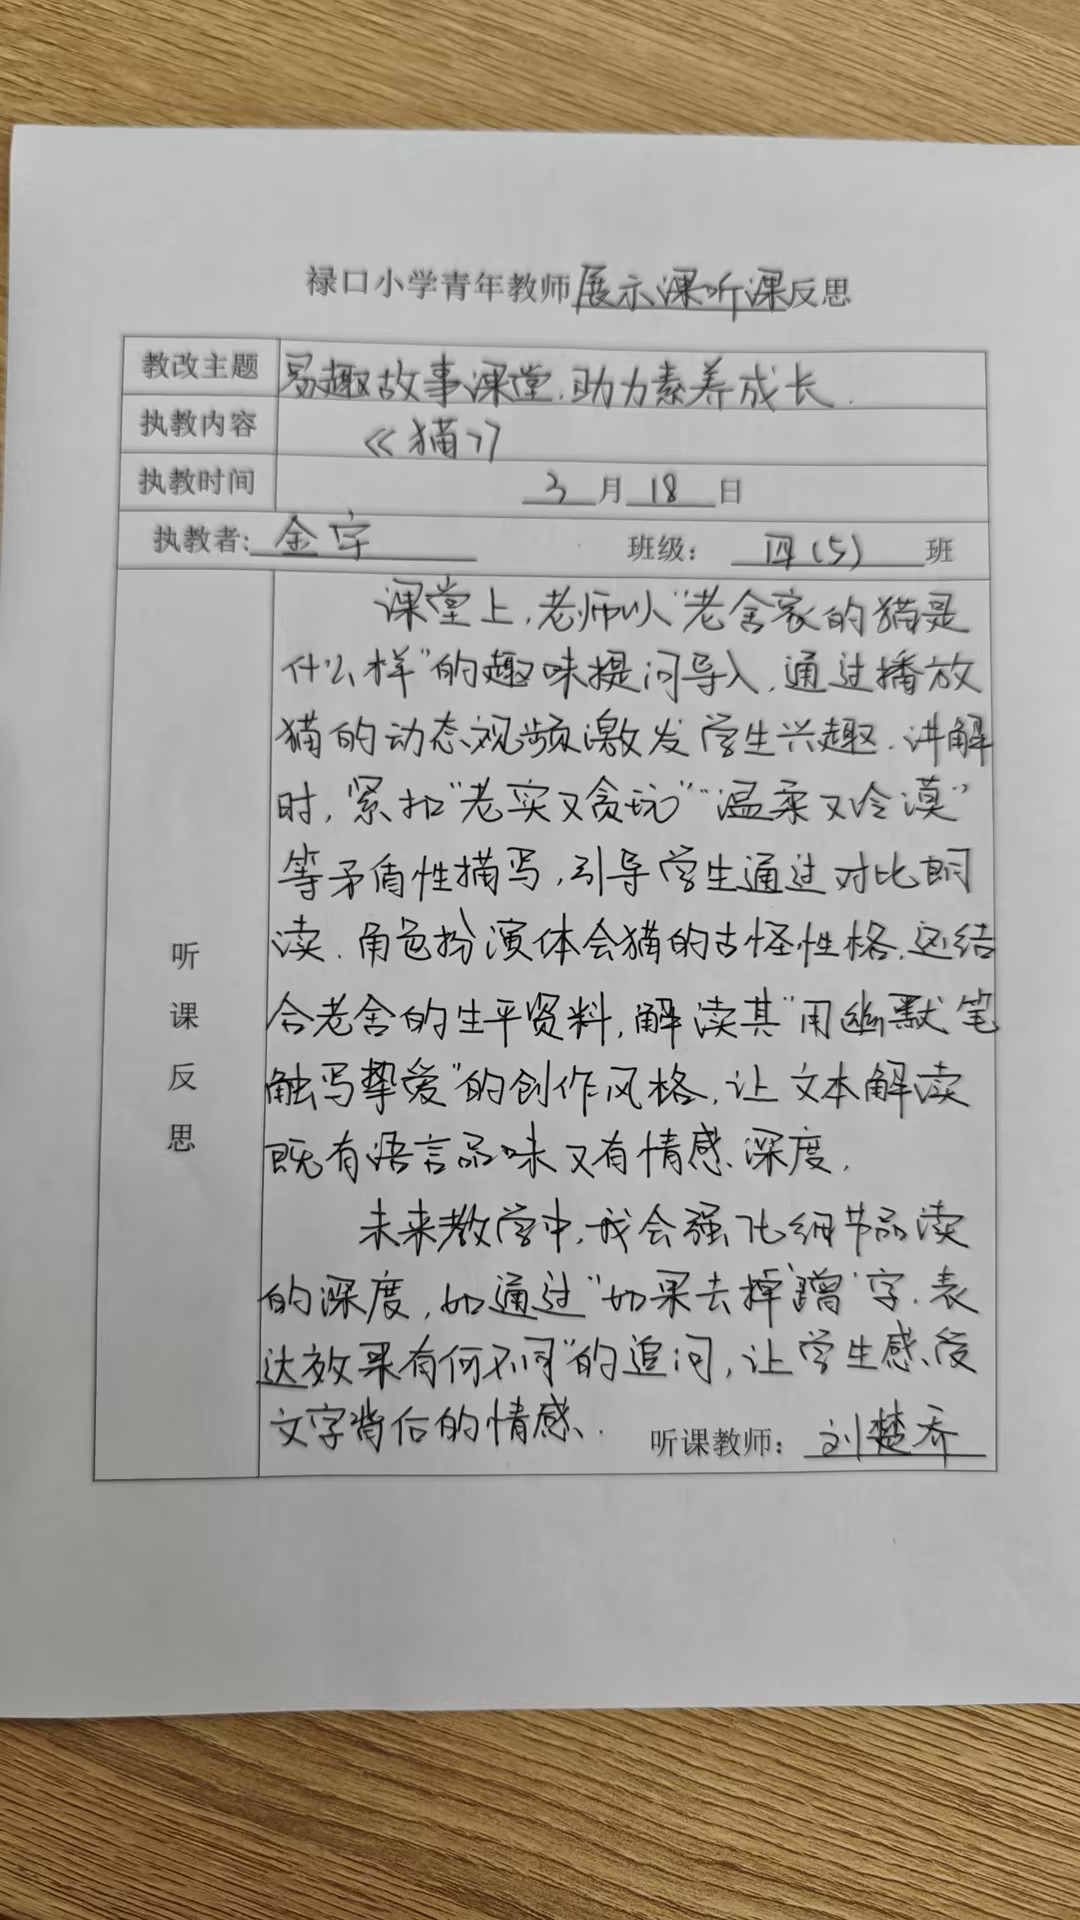 禄口小学青年教师展示课听课反思
教改主题 易趣故事课堂,助力素养成长.
执教内容 《猫》
执教时间 3月18日
执教者: 金宇 班级: 四(5) 班
听课反思
课堂上,老师以“老舍家的猫是
什么样”的趣味提问导入,通过播放
猫的动态视频激发学生兴趣.讲解
时,紧扣“老实又贪玩”“温柔又冷漠”
等矛盾性描写,引导学生通过对比朗
读.角色扮演体会猫的古怪性格.还结
合老舍的生平资料,解读其“用幽默笔
触写挚爱”的创作风格,让文本解读
既有语言品味又有情感深度.
未来教学中,我会强化细节品读
的深度,如通过“如果去掉‘蹭’字.表
达效果有何不同”的追问,让学生感受
文字背后的情感.
听课教师: 刘楚乔